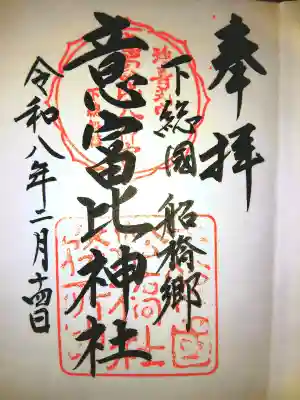 奉拝
下総国 船橋郷
意富比神社
令和八年二月十四日